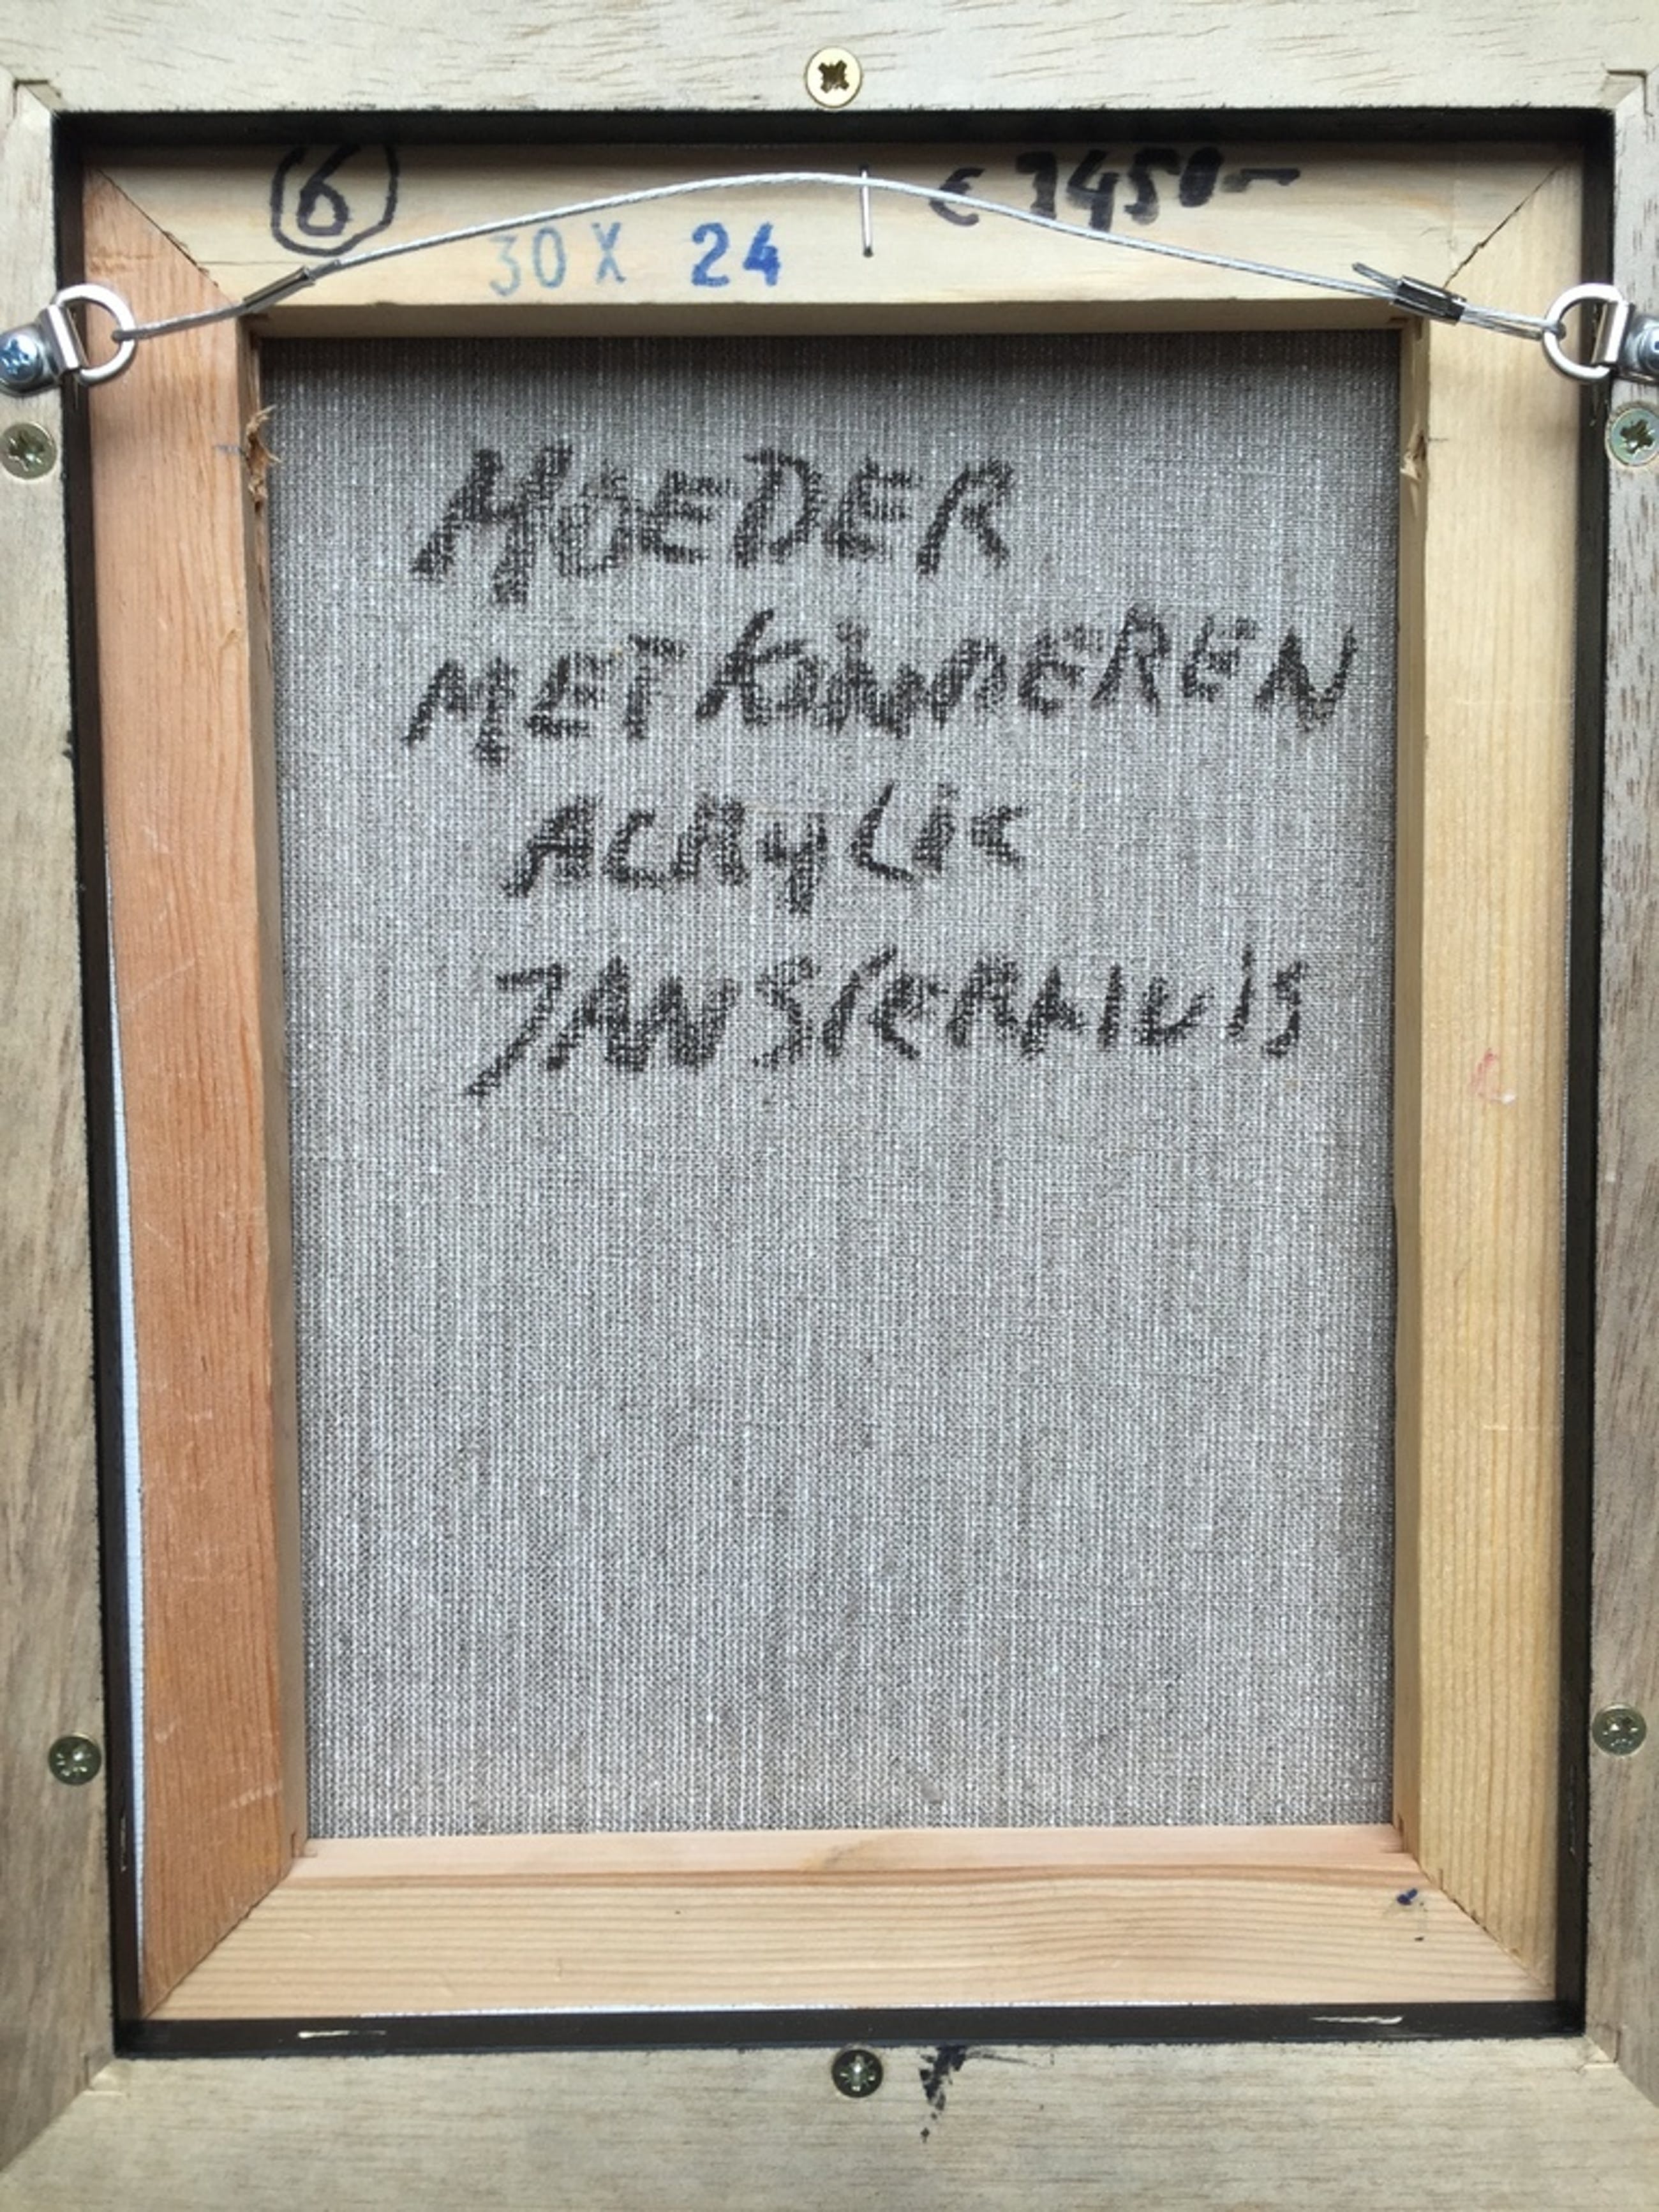 6 € 3450-
30 X 24
MOEDER
MET KINDEREN
ACRYLIC
JAN SIERHUIS